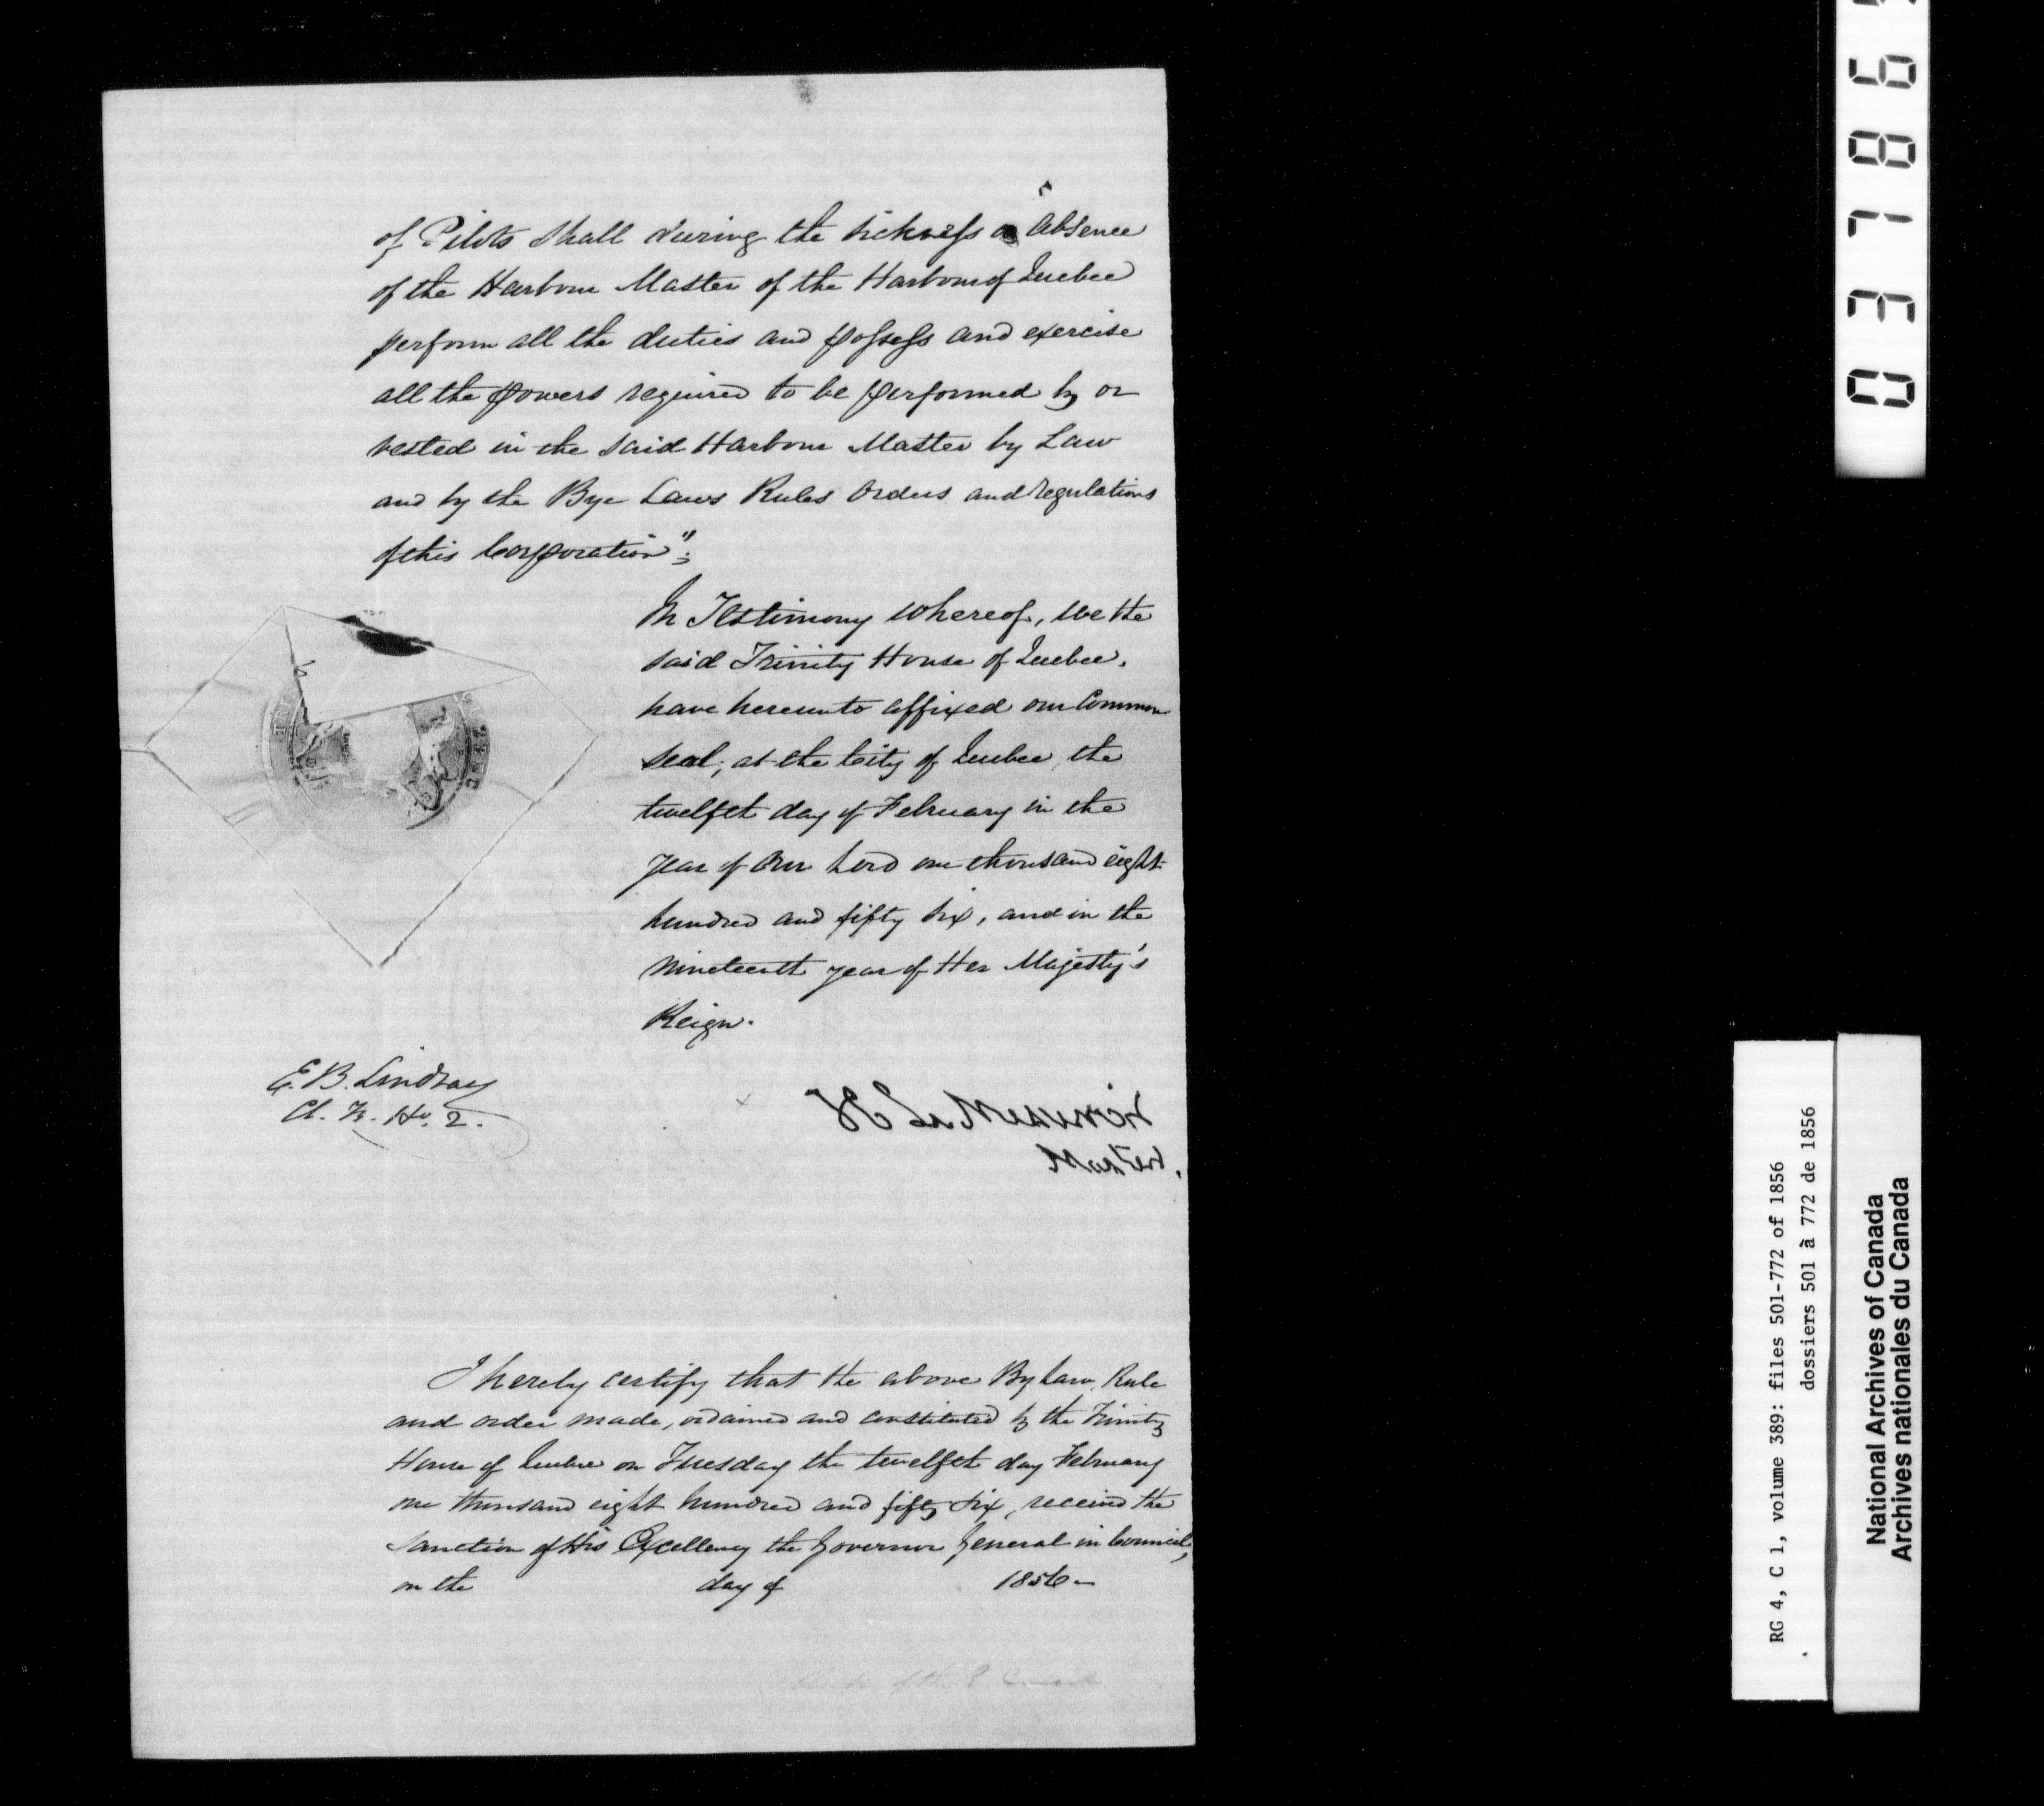 of Pilots shall during the sickness or absence
of the Harbour Master of the Harbour of Quebec
perform all the duties and possess and exercise
all the powers required to be performed by or
vested in the said Harbour Master by Law
and by the Bye Laws Rules Orders and regulations
of this Corporation";
In Testimony whereof, we the
said Trinity House of Quebec,
have hereunto affixed our Common
Seal; at the City of Quebec, the
twelfth day of February in the
year of Our Lord one thousand eight
hundred and fifty six, and in the
Nineteenth year of Her Majesty's
Reign.
E. B. Lindsay
Cl. Tr. Ho. Q.
Le Mesurier
Master.
I hereby certify that the above By Law, Rule
and order made, ordained and constituted by the Trinity
House of Quebec on Tuesday the twelfth day February
one thousand eight hundred and fifty six, received the
Sanction of His Excellency the Governor General in Council,
on the day of 1856 -
03786
RG 4, C 1, volume 389: files 501-772 of 1856
dossiers 501 à 772 de 1856
National Archives of Canada
Archives nationales du Canada